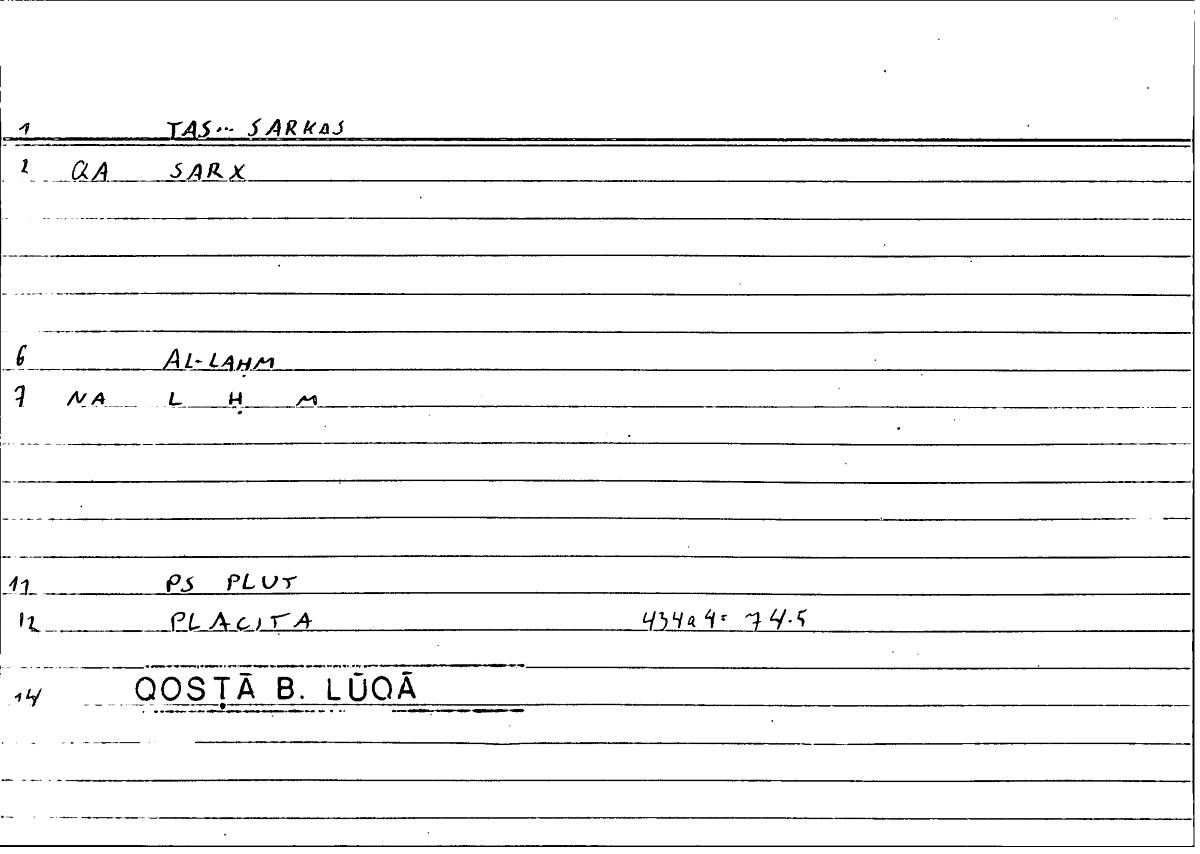 1 TAS... SARKAS
2 QA SARX
6 AL-LAḤM
7 NA L Ḥ M
11 PS PLUT
12 PLACITA 434a4= 74.5
14 QOSṬĀ B. LŪQĀ